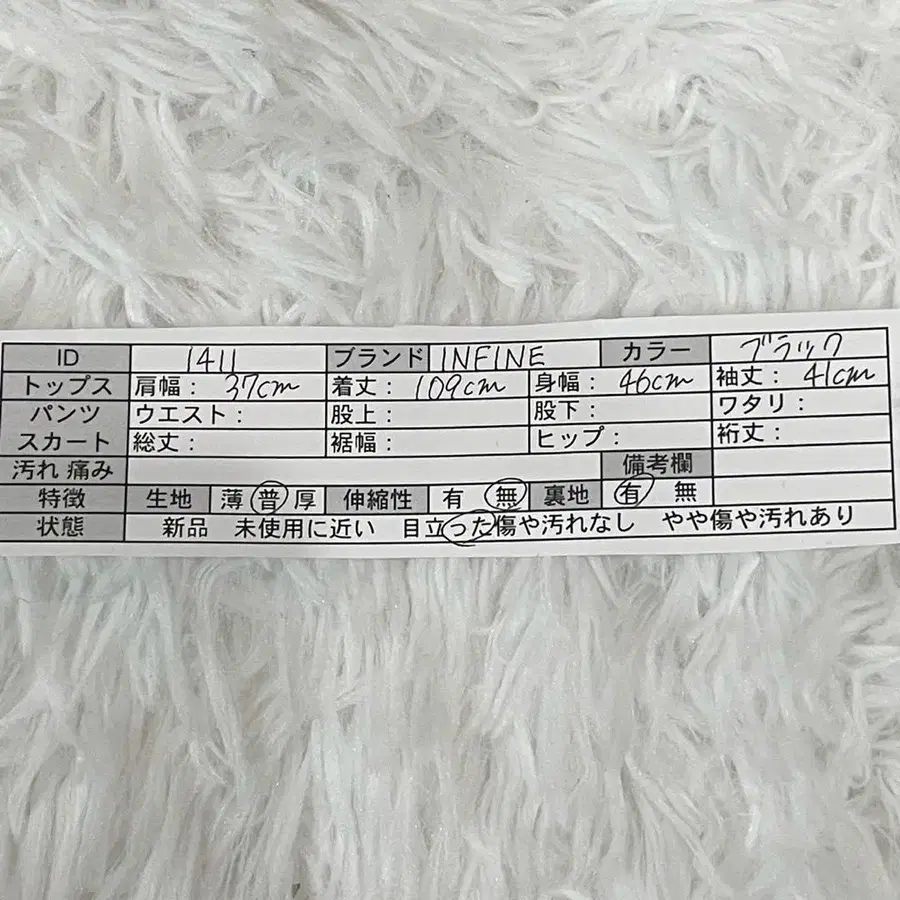 ID 1411 ブランド INFINE カラー ブラック
トップス 肩幅： 37cm 着丈： 109cm 身幅： 46cm 袖丈： 41cm
パンツ ウエスト： 股上： 股下： ワタリ：
スカート 総丈： 裾幅： ヒップ： 裄丈：
汚れ 痛み 備考欄
特徴 生地 薄 普 厚 伸縮性 有 無 裏地 有 無
状態 新品 未使用に近い 目立った傷や汚れなし やや傷や汚れあり